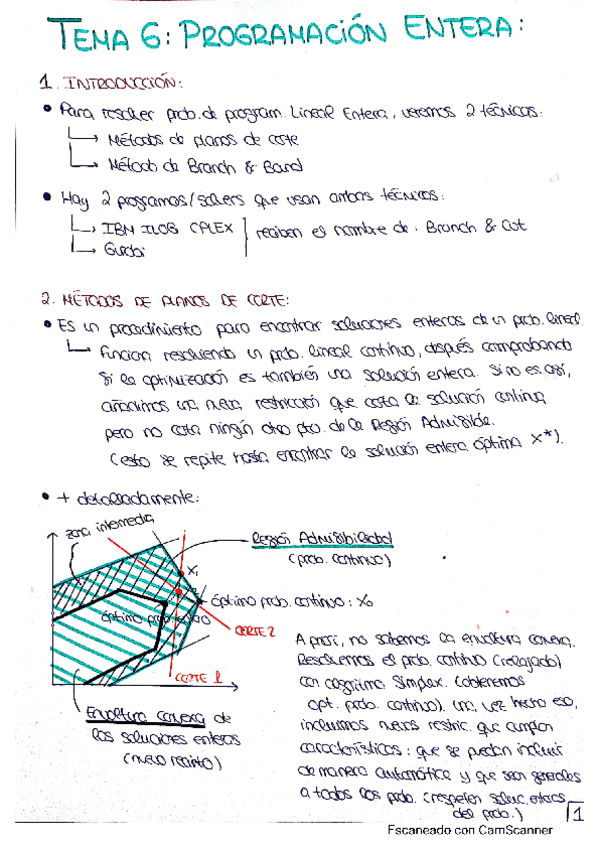 TEMA 6: PROGRAMACIÓN ENTERA:
1. INTRODUCCIÓN:
• Para resolver prob. de program. Lineal Entera, veremos 2 técnicas:
→ Métodos de planos de corte
→ Método de Branch & Band
• Hay 2 programas/solvers que usan ambas técnicas:
→ IBM ILOG CPLEX
→ Gurobi
reciben el nombre de: Branch & Cut
2. MÉTODOS DE PLANOS DE CORTE:
• Es un procedimiento para encontrar soluciones enteras de un prob. lineal.
→ Funcion resolviendo un prob. lineal continuo, después comprobando
si la optimización es también una solución entera. Si no es así,
añadimos una nueva restricción que corta la solución continua
pero no corta ningún otro pto. de la Región Admisible.
(esto se repite hasta encontrar la solución entera óptima X*).
• + detalladamente:
zona intermedia
Región Admisibilidad
(prob. continuo)
X₁
óptimo prob. continuo: X₀
óptimo prob. entero
CORTE 2
CORTE 1
Envoltura convexa de
las soluciones enteras
(nuevo recinto)
A priori, no sabemos la envoltura convexa.
Resolvemos el prob. continuo (relajado)
con algoritmo Simplex. (obtenemos
opt. prob. continuo). Una vez hecho eso,
incluimos nuevas restric. que cumplan
características: que se puedan incluir
de manera automática y que sean generales
a todos los prob. (respeten soluc. enteras
del prob.)
1
Escaneado con CamScanner